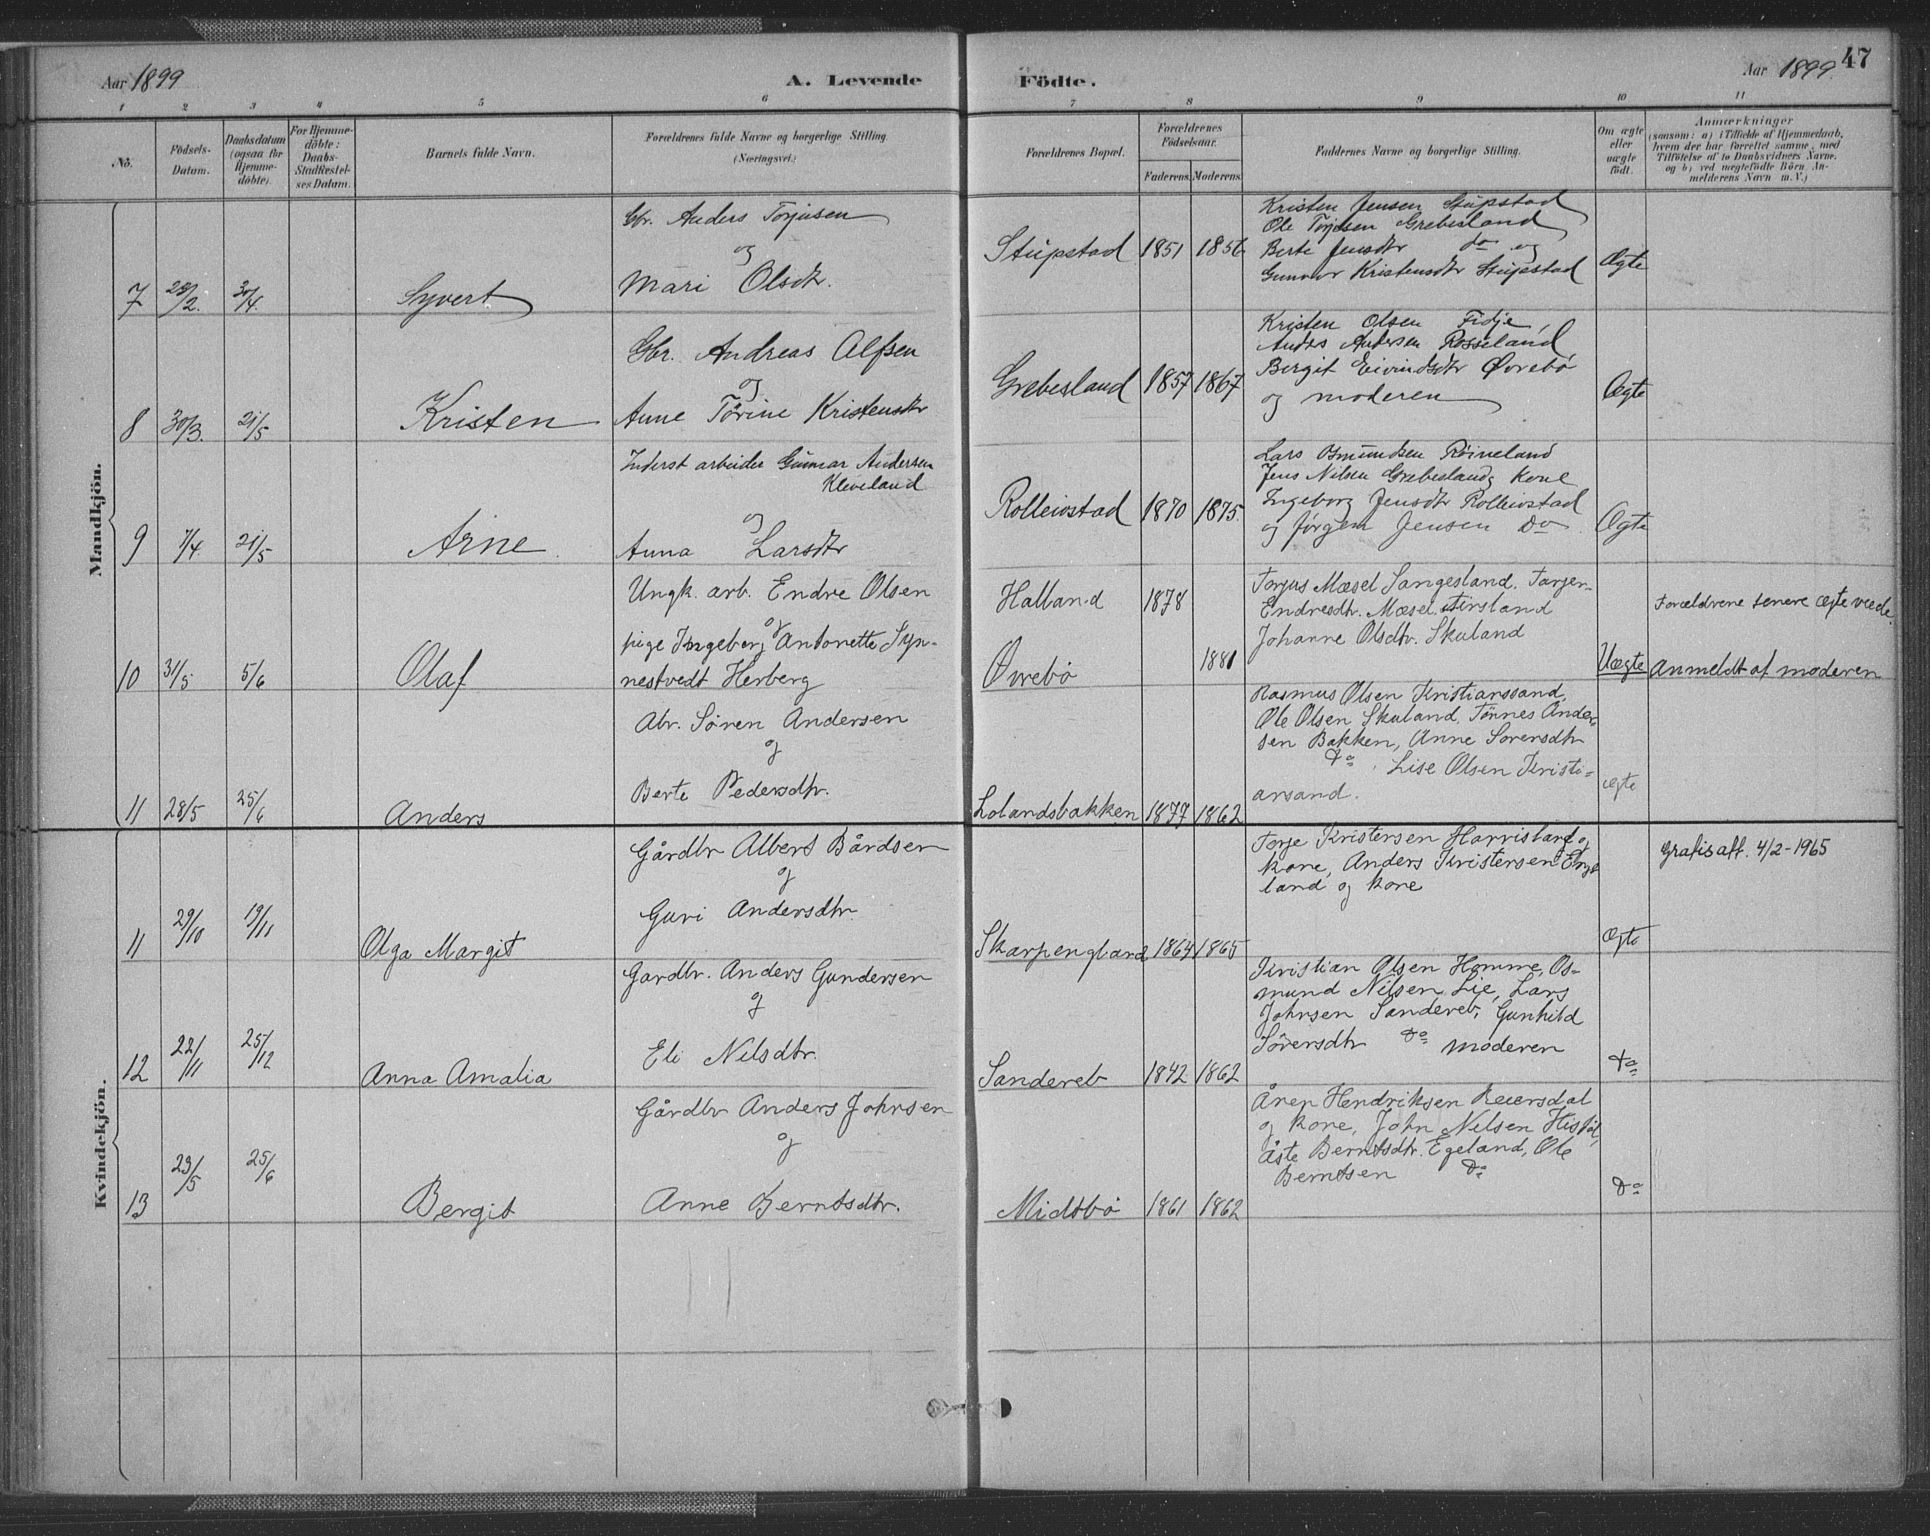 Aar 1899
A. Levende
Födte.
Aar 1899.
47
1 2 3 4 5 6 7 8 9 10 11
No.
Födsels-
Datum.
Daabsdatum
(ogsaa for
Hjemme-
döbte).
For Hjemme-
döbte:
Daabs-
Stadfæstel-
ses Datum.
Barnets fulde Navn.
Forældrenes fulde Navne og borgerlige Stilling.
(Næringsvei.)
Forældrenes Bopæl.
Forældrenes
Födselsaar.
Faderens. Moderens.
Faddernes Navne og borgerlige Stilling.
Om ægte
eller
uægte
födt.
Anmærkninger
(saasom: a) i Tilfælde af Hjemmedaab,
hvem der har forrettet samme, med
Tilföielse af to Daabsvidners Navne,
og b) ved uægtefödte Börn An-
melderens Navn m. V.)
Mandkjön.
7 28/2. 30/4. Syvert
Gbr. Anders Torjusen
og
Mari Olsdtr.
Stupstad 1851 1856
Kristen Jensen Stupstad
Ole Torjusen Grebesland
Berte Jensdtr do og
Gunvor Kristensdtr Stupstad
Ægte
8 30/3. 21/5 Kristen
Gbr. Andreas Alfsen
og
Anne Törine Kristensdtr
Grebesland 1857 1867
Kristen Olsen Fidje,
Anders Andersen Rosseland
Bergit Eivindsdtr Øvrebö
og moderen
Ægte
9 7/4. 21/5 Arne
Inderst arbeider Gunnar Andersen
Kleveland
og
Anna Larsdtr
Rolleivstad 1870 1875.
Lars Osmundsen Röineland
Jens Nilsen Grebesland, kone
Ingeborg Jensdtr Rolleivstad
og Jörgen Jensen Do
Ægte
10 31/5 5/6 Olaf
Ungk. arb. Endre Olsen
og
pige Ingeborg Antonette Syn-
nestvedt Herberg
Halland 1878
Øvrebö 1881
Torjus Mæsel Sangesland. Tarjer-
Endresdtr. Mæsel
Johanne Olsdtr. Skuland
Uægte
Forældrene senere ægteviede.
Anmeldt af moderen
11 28/5 25/6 Anders
Abr. Sören Andersen
og
Berte Pedersdtr.
Lolandsbakken 1877 1862
Rasmus Olsen Kristianssand,
Ole Olsen Skuland, Tönnes Ander-
sen Bakken, Anne Sorensdtr
Do. Lise Olsen Kristi-
ansand.
ægte
Kvindekjön.
11 29/10 19/11 Olga Margit
Gårdbr Albert Bårdsen
og
Guri Andersdtr
Skarpengland 1864 1865
Torje Kristensen Harrisland og
kone, Anders Kristensen Enge-
land og kone
Ægte
Gratisatt. 4/2-1965
12 22/11 25/12 Anna Amalia
Gardbr. Anders Gundersen
og
Eli Nilsdtr.
Sandereb 1842 1862
Kristian Olsen Homme, Os-
mund Nilsen Lie, Lars
Johnsen Sandereb, Gunhild
Sörensdtr Do moderen
Do
13 23/5 25/6 Bergit
Gårdbr Anders Johnsen
og
Anne Berntsdtr.
Midtbö 1861 1862
Åren Hendriksen Reiersdal
og kone, John Nilsen
Åste Berntsdtr. Egeland, Ole
Berntsen Do
Do